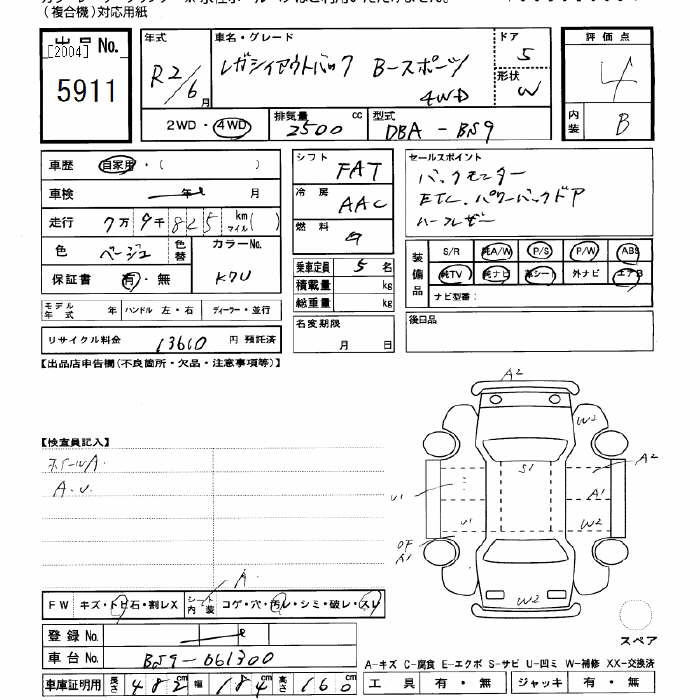 (複合機)対応用紙
出品No.
[2004]
5911
年式 車名・グレード ドア 評価点
R2/6月 レガシィアウトバック B-スポーツ 4WD 5
形状 W
4
2WD・4WD 排気量 2500 cc 型式 DBA-BS9 内装 B
車歴 自家用・( )
車検 年 月
走行 7万9千825 km マイル( )
色 ベージュ 色替 カラーNo. K7U
保証書 有・無
モデル年式 年 ハンドル 左・右 ディーラー・並行
リサイクル料金 13610 円 預託済
シフト FAT
冷房 AAC
燃料
乗車定員 5 名
積載量 kg
総重量 kg
名変期限
月 日
セールスポイント
バックモニター
ETC. パワーバックドア
ハーフレザー
装備品 S/R 純A/W P/S P/W ABS
純TV 純ナビ 革シート 外ナビ エアB
ナビ型番:
後日品
【出品店申告欄(不良箇所・欠品・注意事項等)】
【検査員記入】
ホイールA.
A.U.
A2
W2
A2
S1
U1
A1
U1
W2
A1
W2
A
FW キズ・トビ石・割レX シート内装 コゲ・穴・汚レ・シミ・破レ・スレ
登録No.
車台No. BS9-061300
車庫証明用 長さ 482 cm 幅 184 cm 高さ 160 cm
スペア
A-キズ C-腐食 E-エクボ S-サビ U-凹ミ W-補修 XX-交換済
工具 有・無 ジャッキ 有・無